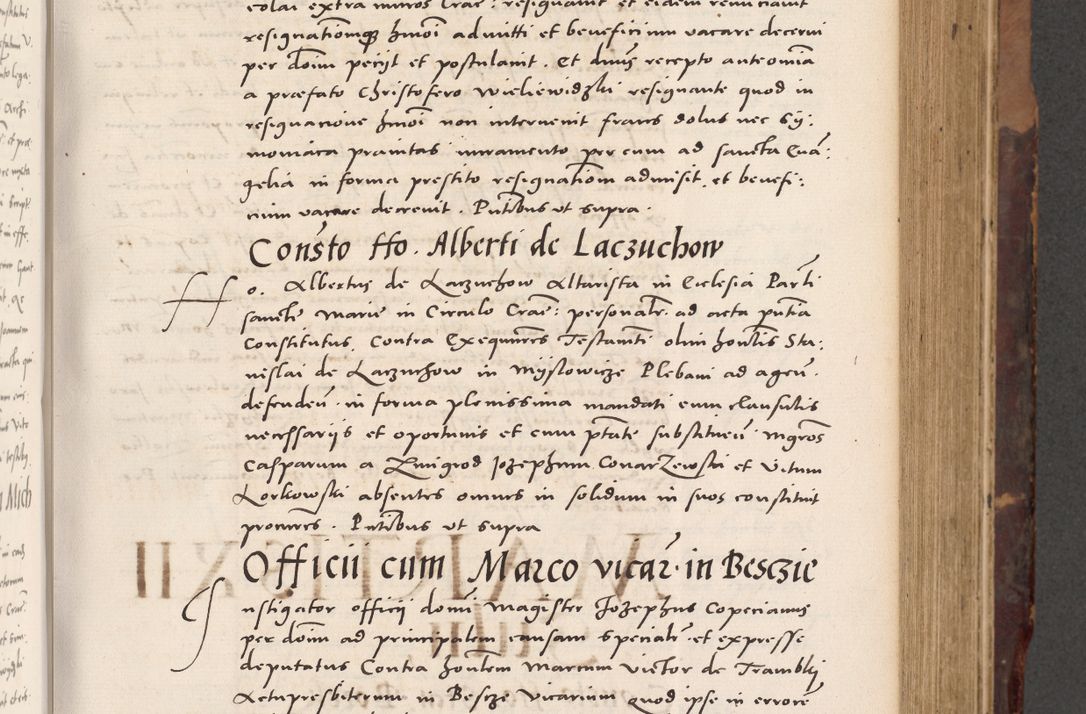 colai extra muros Crac: resignavit et eidem renunciavit
resignationemq hmoi admitti et beneficium vacare decerni
per dnm petijt et postulavit. Et dnus recepto anteomnia
a præfato Christofero Wieliewidzki resignante quod in
resignacione hmoi non intervenit fraus dolus nec Sy:
moniaca pravitas iuramento per eum ad sancta Evā:
gelia in forma prestito resignationem admisit, et benefi:
cium vacare decrevit. Pntibus ut supra.
Consto Ho. Alberti de Laczuchow
Ho. Albertus de Laczuchow Altarista in Ecclesia Parti
sancte Marie in Circulo Crac: personalr. ad acta pntia
Constitutus, Contra Exequutores Testamti olim hontis Sta:
nislai de Laczuchow in Myslowicze Plebani ad agen.
defenden. in forma plenissima mandati cum clausulis
necessariis et oportunis et cum ptate substituen Mgros
Casparum a Zmigrod Jozephum Conarzewski et Vitum
Lorkowski absentes omnes in solidum in suos constituit
procures. Pntibus ut supra
Officii cum Marco vicar. in Besczie
Instigator officij domi Magister Jozephus Copecianus
per dnm ad principalem causam specialr et expresse
deputatus Contra hontem Marcum Victor de Tramblij
Artupresbiterum in Bescze Vicarium quod ipse in errore